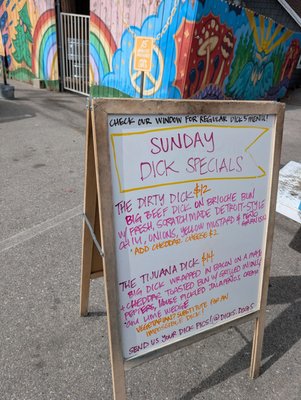 CHECK OUR WINDOW FOR REGULAR DICK'S MENU!
SUNDAY
DICK SPECIALS
THE DIRTY DICK $12
BIG BEEF DICK ON BRIOCHE BUN
W/ FRESH, SCRATCH MADE DETROIT-STYLE
CHILI, ONIONS, YELLOW MUSTARD &
GARNISH
*ADD CHEDDAR CHEESE $2
THE TIJUANA DICK $14
BIG DICK WRAPPED IN BACON ON A
CHEDDAR TOASTED BUN W/ GRILLED ONIONS
PEPPERS, HOUSE PICKLED JALAPENOS, CREMA
LIME WEDGE
VEGETARIAN? SUBSTITUTE FOR AN
DICK!
SEND US YOUR DICK PICS! @DICKS.DOGS